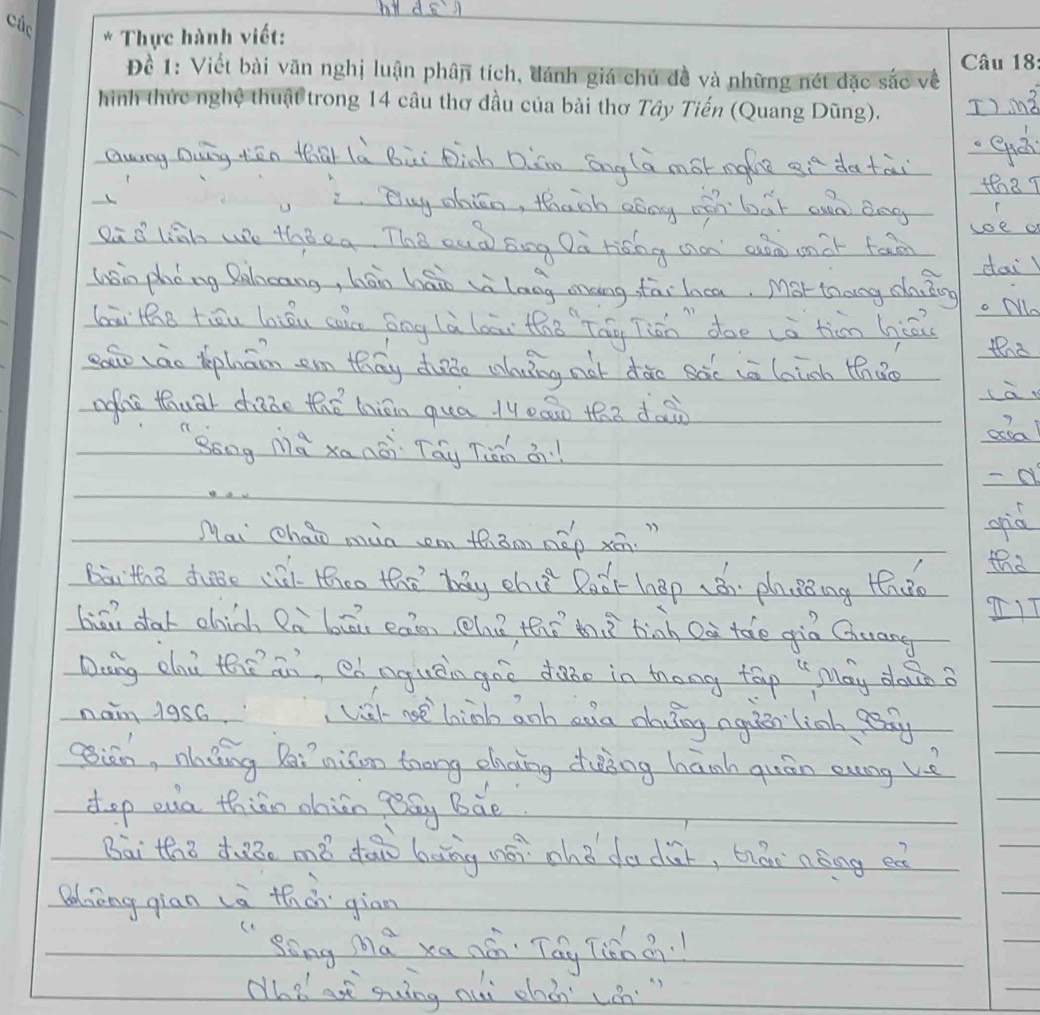 Các
* Thực hành viết:
Đề 1: Viết bài văn nghị luận phân tích, đánh giá chủ đề và những nét đặc sắc về
hình thức nghệ thuật trong 14 câu thơ đầu của bài thơ Tây Tiến (Quang Dũng).
Quang Dũng tên thật là Bùi Đình Diệm ông là một nghệ sĩ đa tài
. Tuy nhiên, thành công nổi bật của ông
là ở lĩnh vực thơ ca. Thơ của ông là tiếng nói của một tâm
hồn phóng khoáng, hồn hậu và lãng mạng, tài hoa. Một trong những
bài thơ tiêu biểu của ông là bài thơ "Tây Tiến" đọc và tìm hiểu
sâu vào tphẩm em thấy được những nét đặc sắc về hình thức
nghệ thuật được thể hiện qua 14 câu thơ đầu
"Sông Mã xa rồi Tây Tiến ơi!
...
Mai Châu mùa em thơm nếp xôi."
Bài thơ được viết theo thể bảy chữ kết hợp với phương thức
biểu đạt chính là biểu cảm. Chủ thể trữ tình là tác giả Quang
Dũng chủ thể ẩn, có nguồn gốc được in trong tập "Mây đầu ô
năm 1986. , viết về hình ảnh của những người lính Tây
Tiến, những kỉ niệm trong chặng đường hành quân cùng vẻ
đẹp của thiên nhiên Tây Bắc.
Bài thơ được mở đầu bằng nỗi nhớ da diết, trào dâng cả
không gian và thời gian
"Sông Mã xa rồi Tây Tiến ơi!
Nhớ về rừng núi nhớ chơi vơi"
Câu 18:
I)
thơ
của
dai
thơ
và
của
giá
thơ
II)